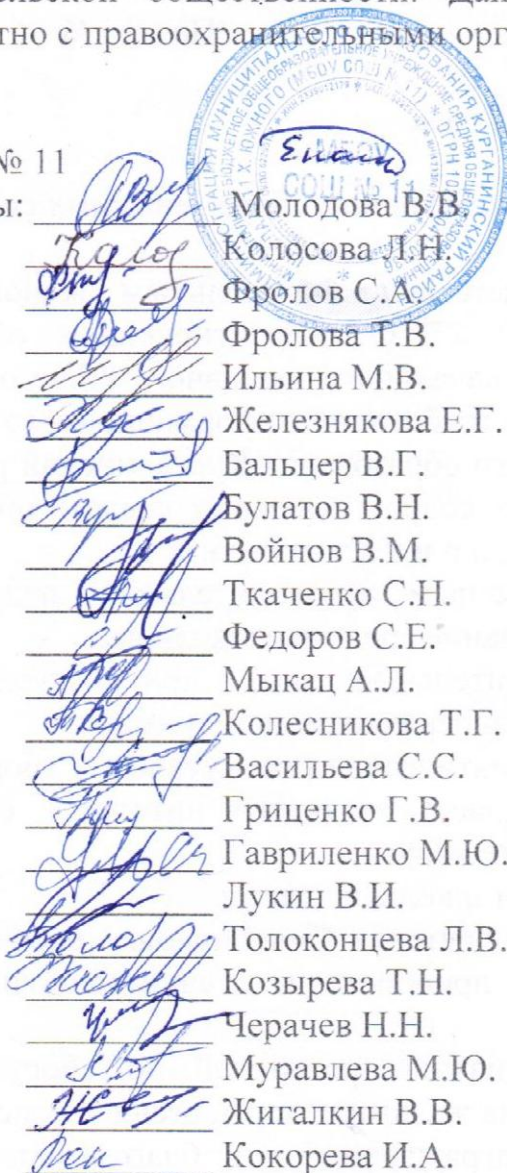 льской общественности. Дан
тно с правоохранительными орг
№ 11
ы: Молодова В.В.
Колосова Л.Н.
Фролов С.А.
Фролова Т.В.
Ильина М.В.
Железнякова Е.Г.
Бальцер В.Г
Булатов В.Н.
Войнов В.М.
Ткаченко С.Н.
Федоров С.Е.
Мыкац А.Л.
Колесникова Т.Г.
Васильева С.С.
Гриценко Г.В.
Гавриленко М.Ю.
Лукин В.И.
Толоконцева Л.В.
Козырева Т.Н.
Черачев Н.Н.
Муравлева М.Ю.
Жигалкин В.В.
Кокорева И.А.
МБОУ
СОШ № 11